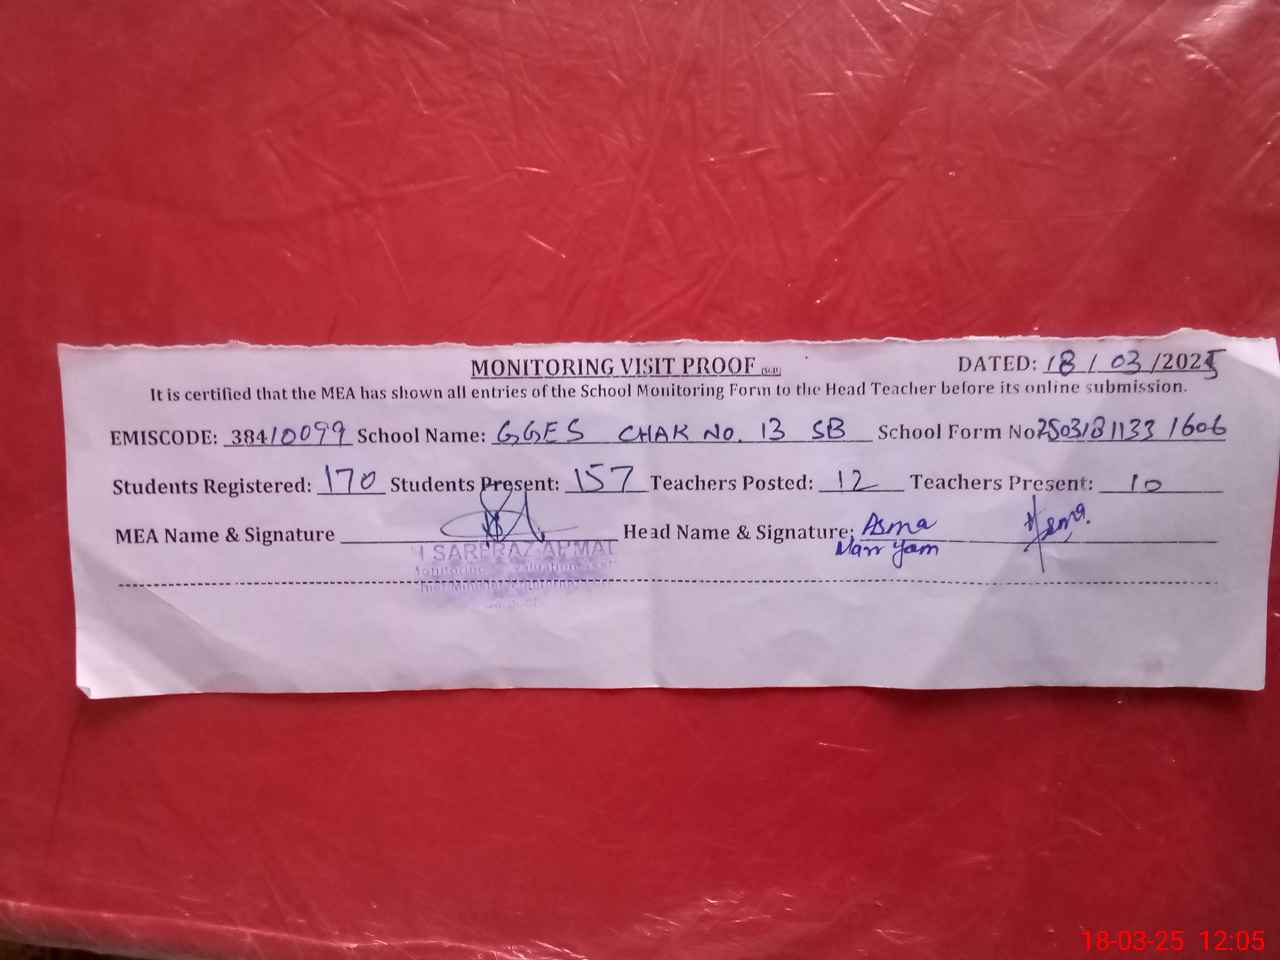 MONITORING VISIT PROOF DATED: 18 / 03 /2025
It is certified that the MEA has shown all entries of the School Monitoring Form to the Head Teacher before its online submission.
EMISCODE: 38410099 School Name: GGES CHAK NO. 13 SB School Form No 2503181133 1606
Students Registered: 170 Students Present: 157 Teachers Posted: 12 Teachers Present: 10
MEA Name & Signature Head Name & Signature: Asma Asma
Marryam
SARFRAZ AHMAD
Monitoring
18-03-25 12:05